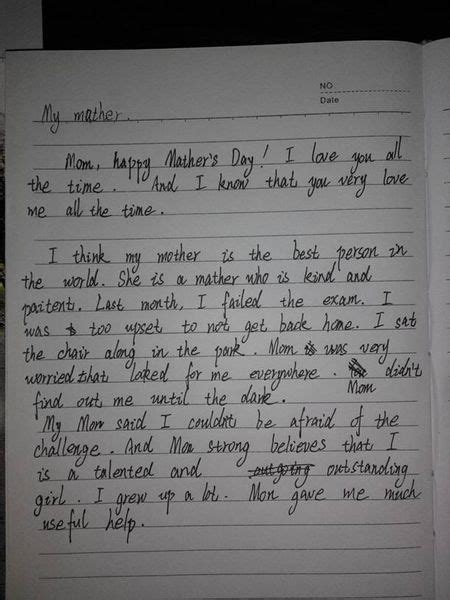 NO
Date
My mather.
Mom, happy Mather's Day! I love you all
the time. And I know that you very love
me all the time.
I think my mother is the best person in
the world. She is a mather who is kind and
paitent. Last month, I failed the exam. I
was too upset to not get back home. I sat
the chair along in the park. Mom is was very
worried that loked for me everywhere. Mom didn't
find out me until the dark.
My Mom said I couldn't be afraid of the
challenge. And Mom strong believes that I
is a talented and outgoing outstanding
girl. I grew up a lot. Mom gave me much
useful help.